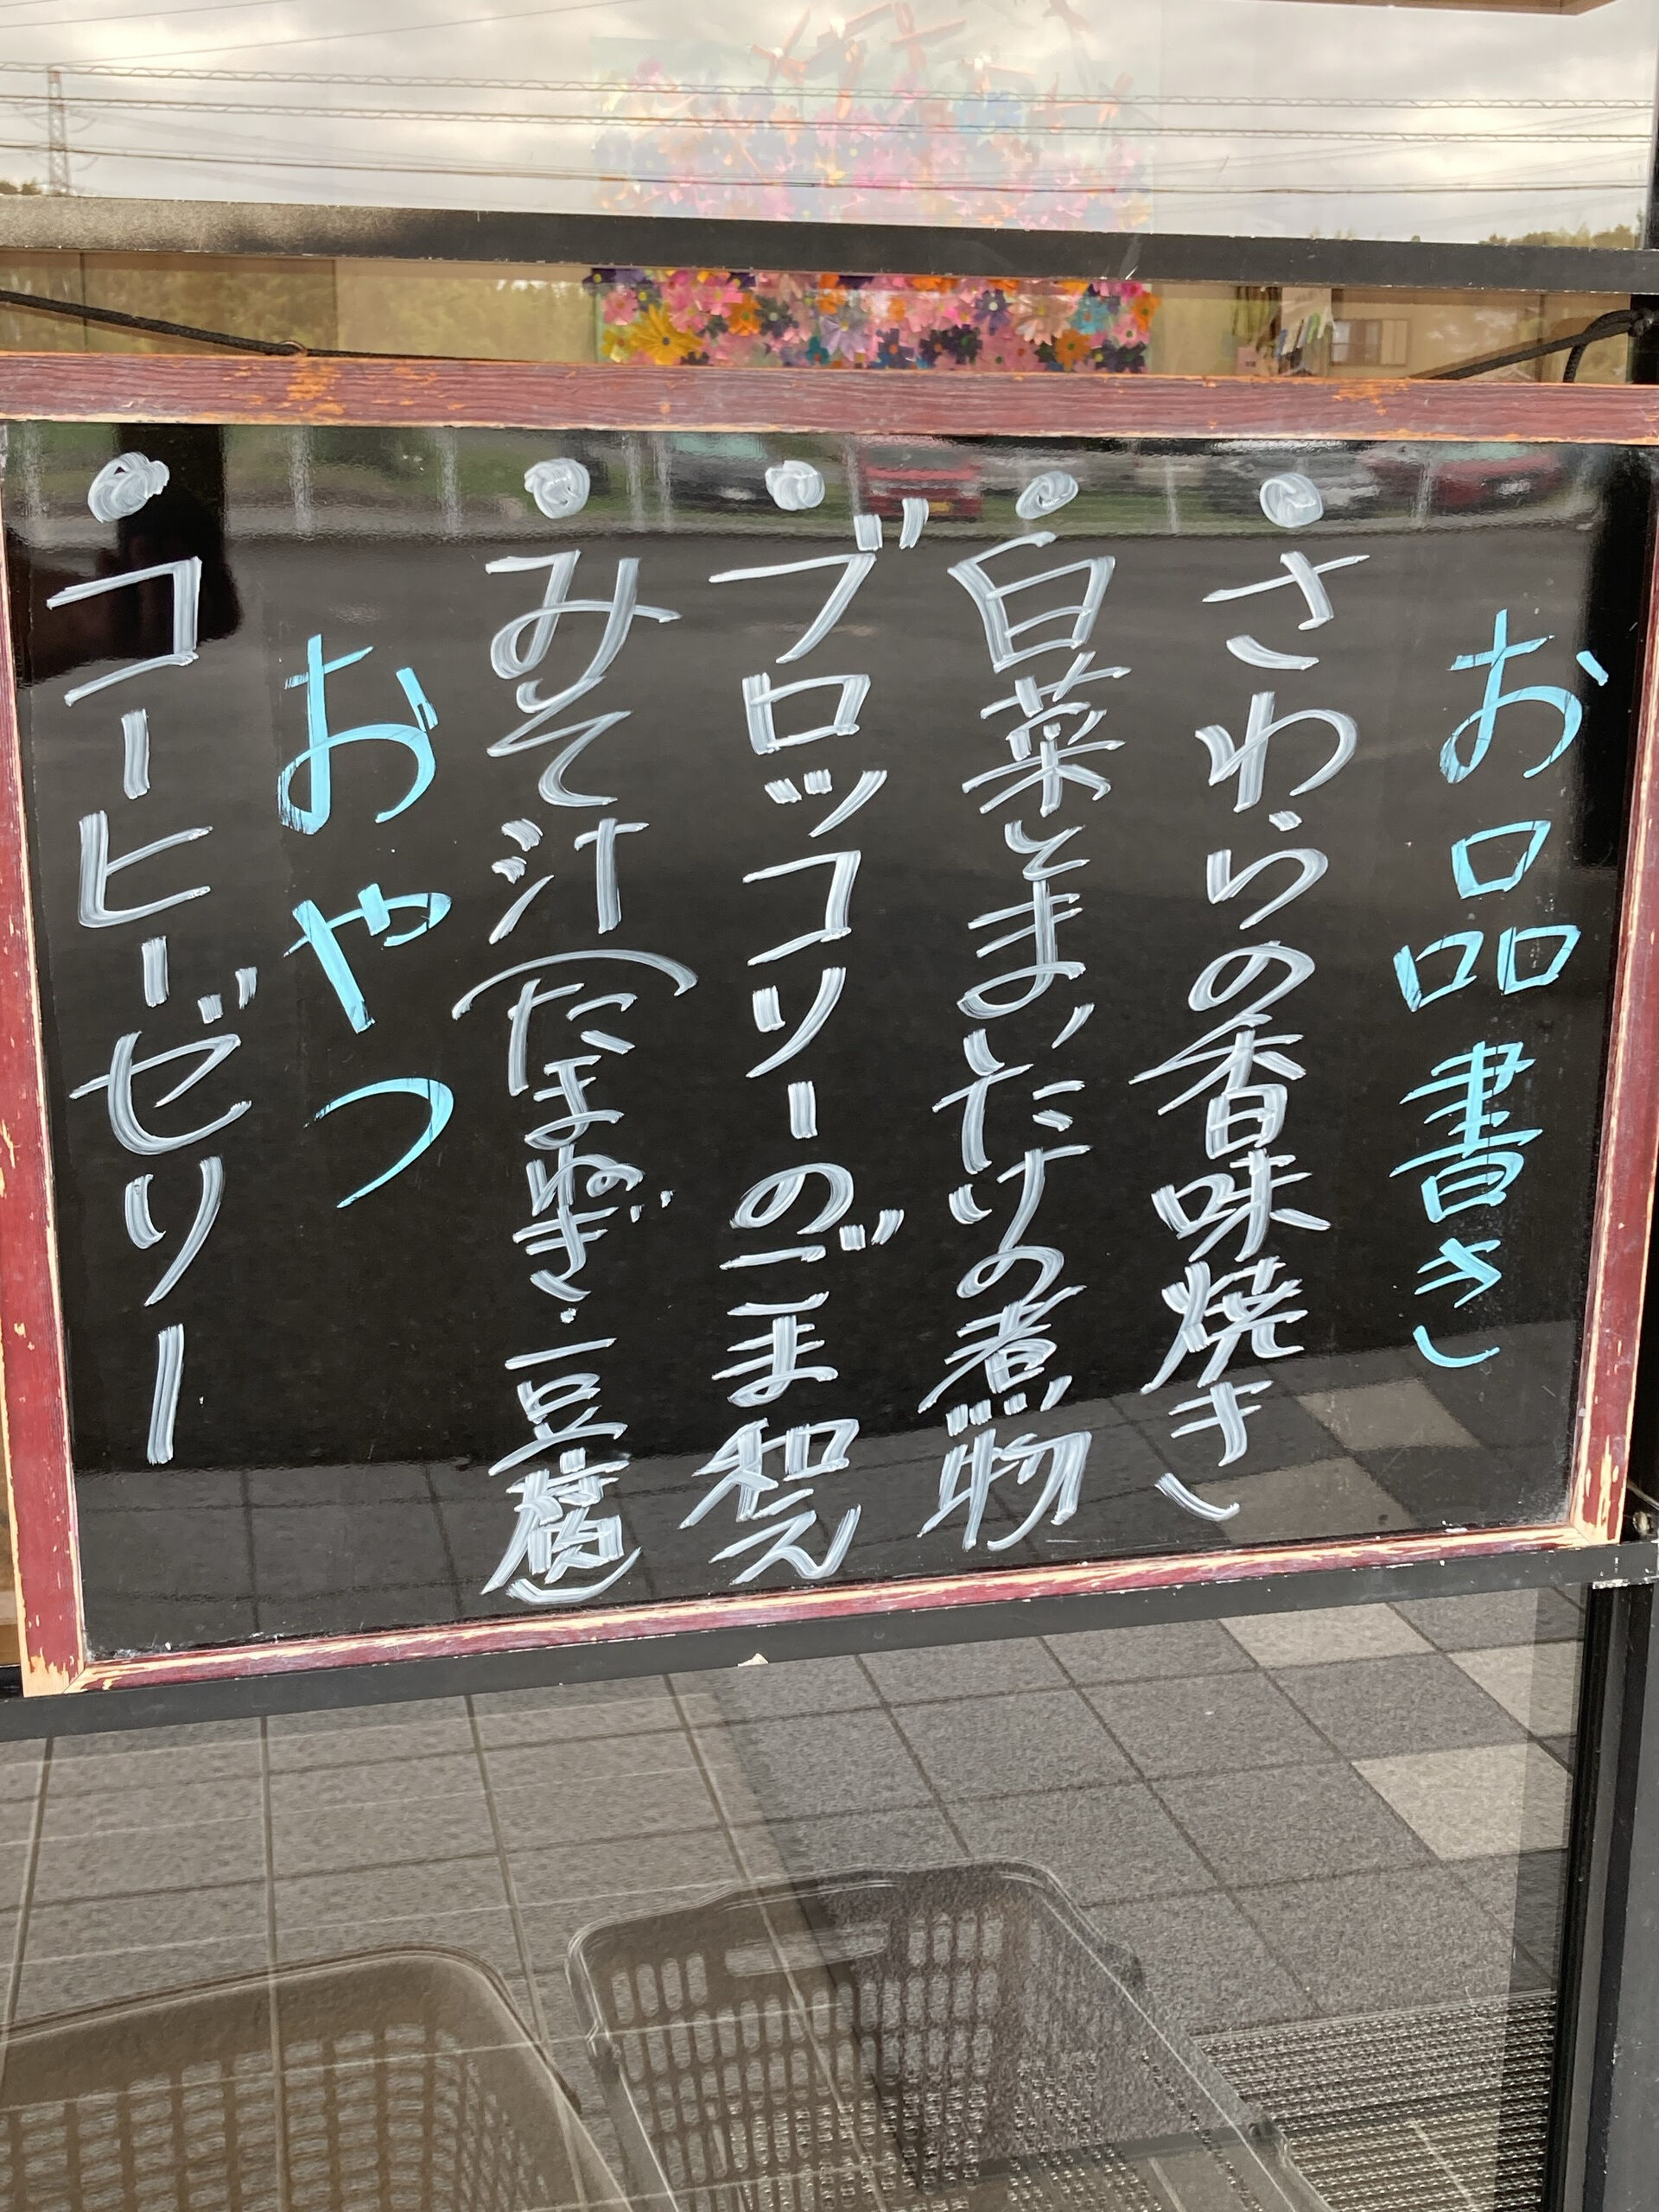 お品書き
・さわらの香味焼き
・白菜とまいたけの煮物
・ブロッコリーのごま和え
・みそ汁(たまねぎ・豆腐)
おやつ
・コーヒーゼリー